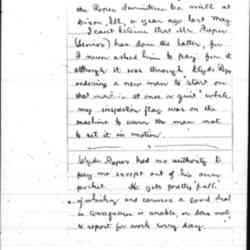 the Roper Furniture Co. mill at
Dixon, Ill., a year ago last May
I can't believe that Mr. Roper
(Senior) has done the latter, for
I never asked him to pay for it
although it was through Clyde Roper
ordering a new man to "start on
that machine at once or quit" while
my inspection flag was on the
machine to warn the man not
to set it in motion.
Clyde Roper had no authority to
pay me except out of his own
pocket. He gets pretty "full"
of whiskey and carouses a good deal
in consequence is unable, or does not
to report for work every day.